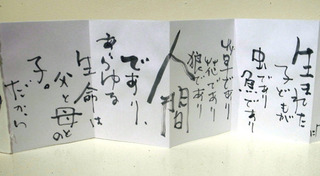 生まれた
子どもが
虫であり
魚であり
草であり
花であり
狼であり
人間
であり、
あらゆる
生命は
父と母との
子。
だから